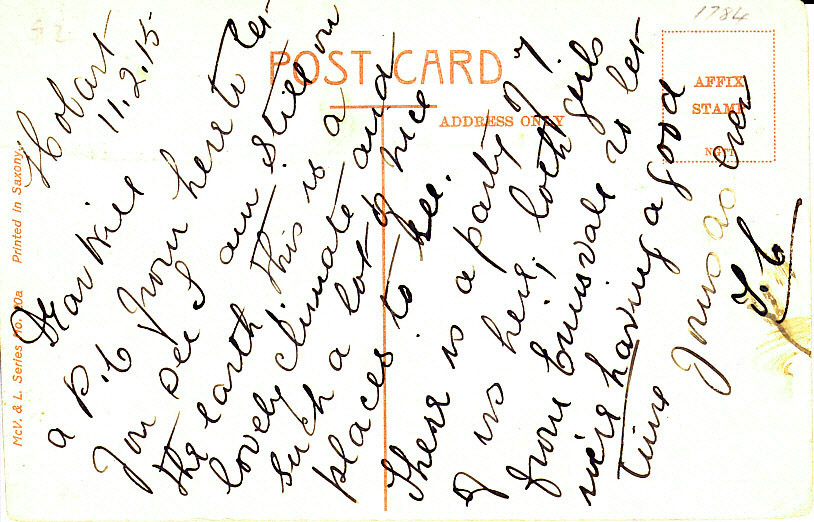 1784
POST CARD
ADDRESS ONLY
AFFIX
STAMP
McV. & L. Series No. Printed in Saxony.
Hobart
11.2.15
Dear Will
a P.C from here to let
you see I am still on
the earth. This is a
lovely climate and
such a lot of nice
places to see.
There is a party of 7
of us here, girls
from
having a good
time Yours as ever